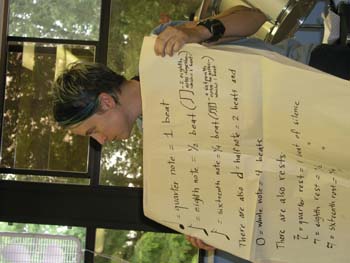 ♩ = quarter note = 1 beat
♪ = eighth note = ½ beat ( ♫ = 2 eighths,
= sixteenth note = ¼ beat (
There are also = half note = 2 beats and
O = whole note = 4 beats.
There are also rests
= quarter rest = 1 beat of silence
= eighth rest = ½ "
= sixteenth rest = ¼ "